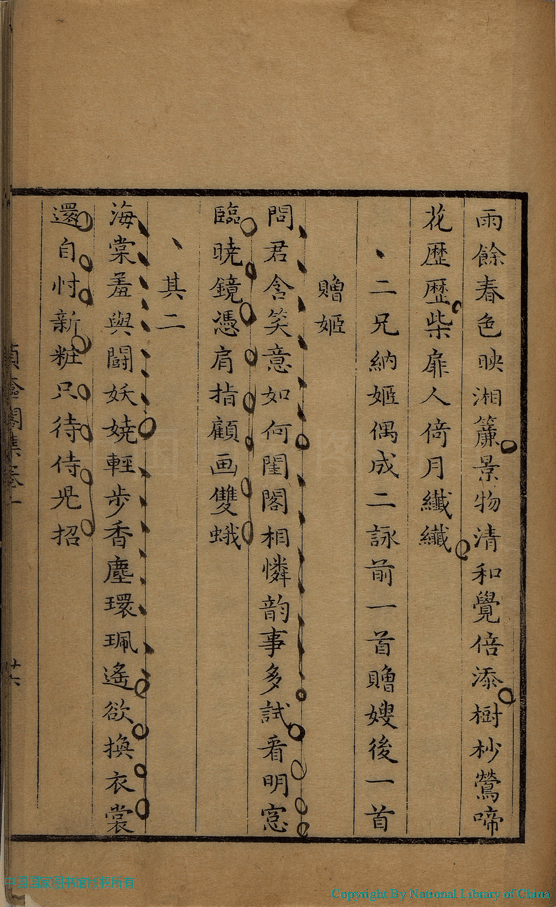 雨餘春色映湘簾景物清和覺倍添樹杪鶯啼
花歷歷柴扉人倚月纖纖
二兄納姬偶成二詠前一首贈嫂後一首
贈姬
問君含笑意如何閨閣相憐韵事多試看明窓
臨曉鏡憑肩指顧画雙蛾
其二
海棠羞與鬪妖嬈輕步香塵環珮遙欲換衣裳
還自忖新粧只待侍兒招
Copyright By National Library of China